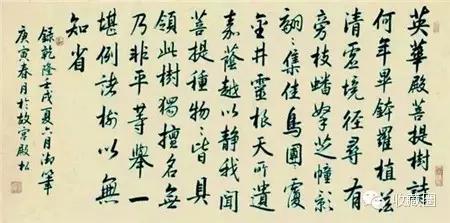 英華殿菩提樹詩
何年畢鉢羅植茲
清虛境徑尋有
旁枝蟠拏芝幢影
翩〻集佳鳥團〻覆
金井靈根天所遺
嘉蔭越以静我聞
菩提種物〻皆具
領此樹獨擅名無
乃非平等舉一
堪例諸樹以無
知省
錄乾隆壬戌夏六月御筆
庚寅春月於故宮殿松